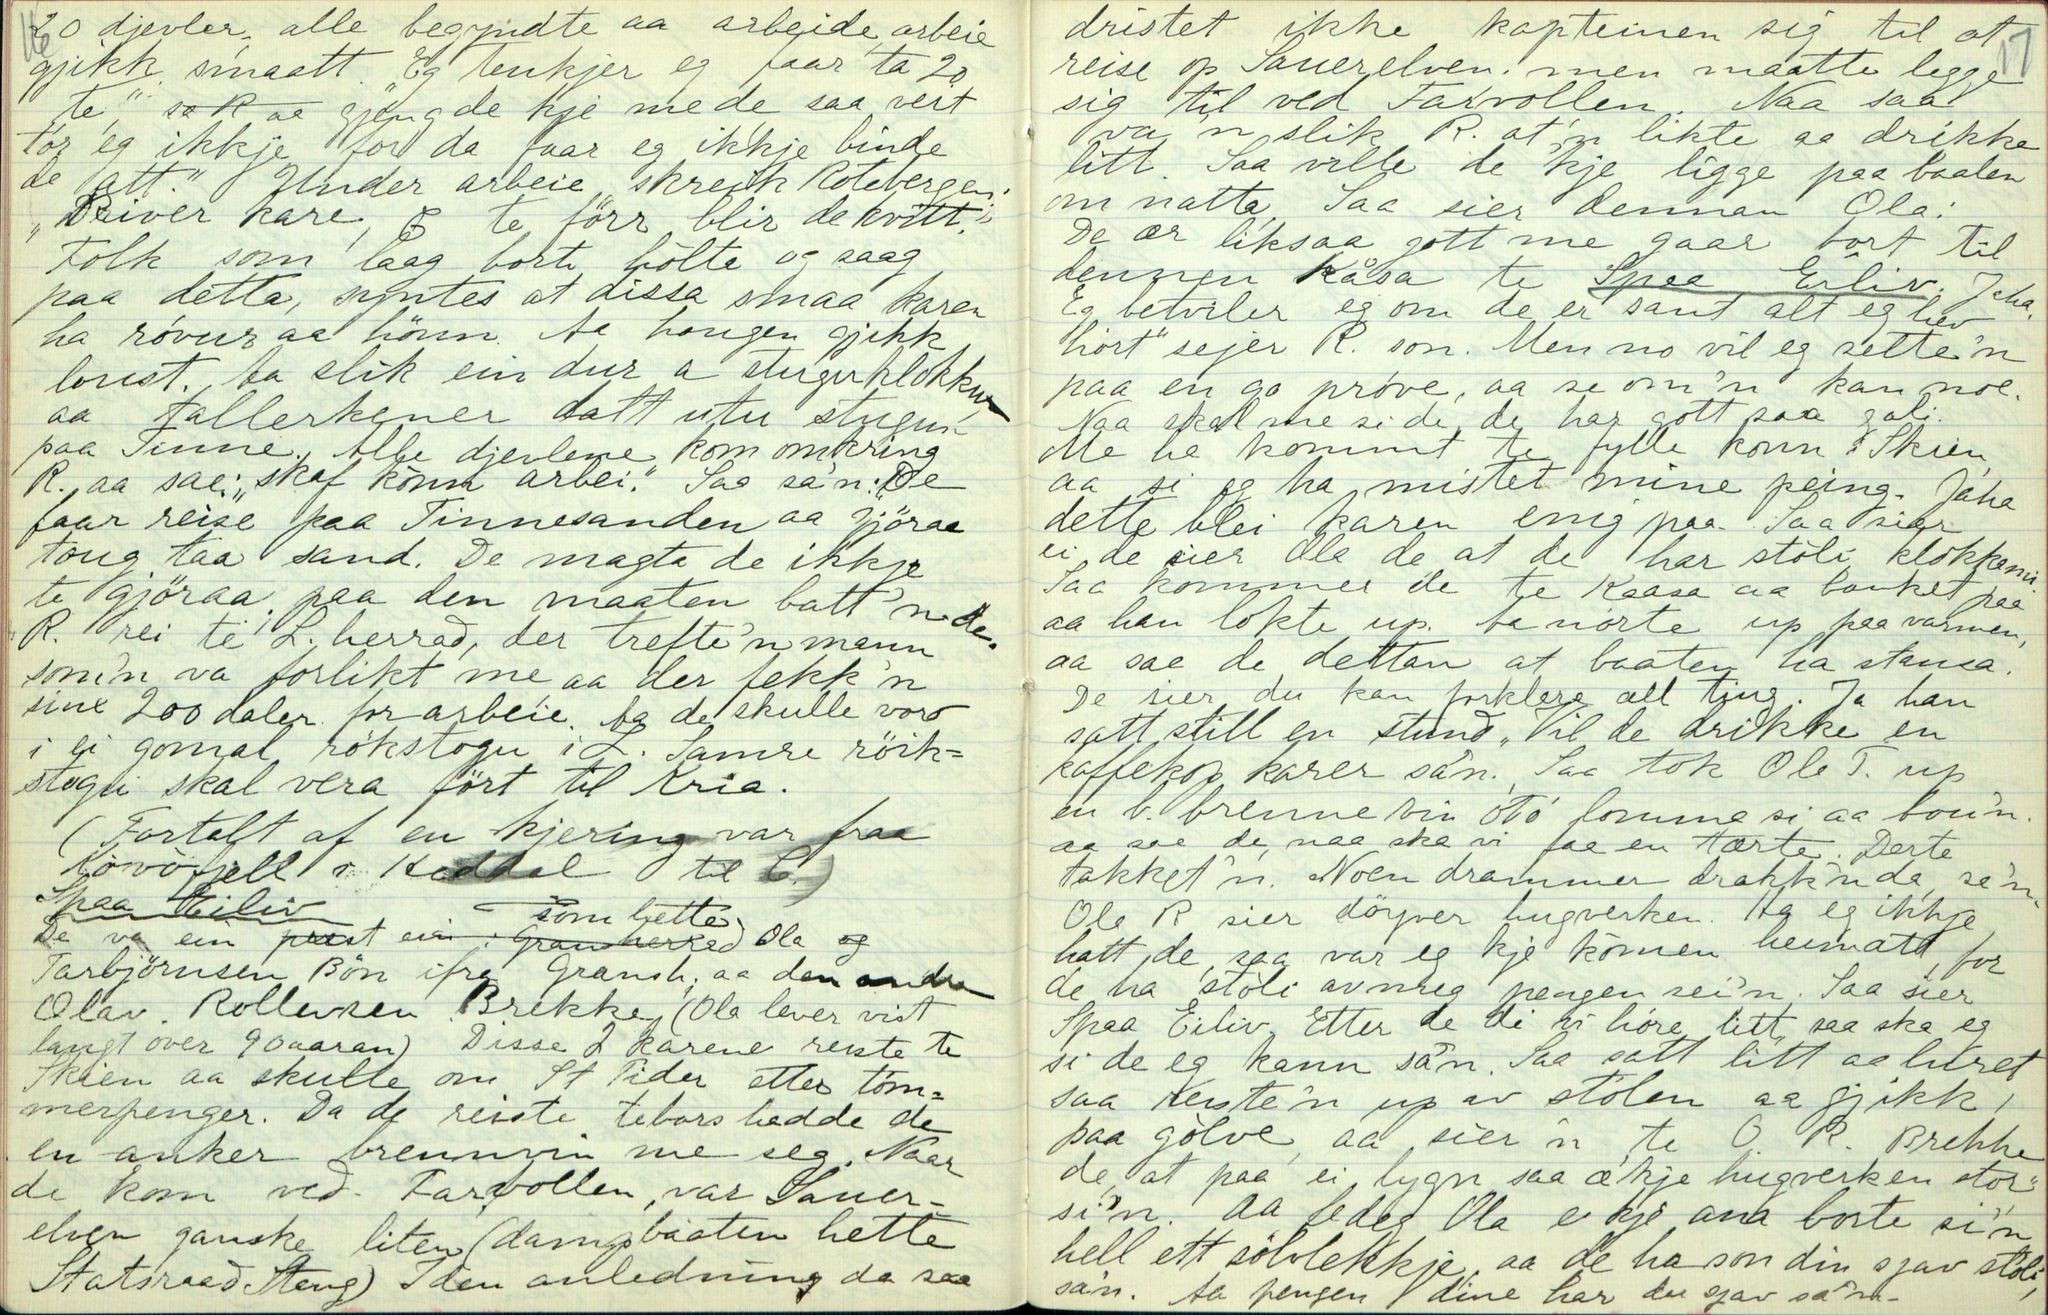 16
20 djevler, alle begyndte aa arbeide, arbeie
gjikk smaatt. "Eg tenkjer eg faar ta 20
te," sa R aa gjeng de kje me de saa vert
tör eg ikkje for da faar eg ikkje binde
de att." Under arbeie skreik Rotebergen:
"Driver kare, te förr blir de kvitt."
Folk som laag borti hölte og saag
paa detta, syntes at dissa smaa karen
ha róvur aa hönn. Aa haugen gjikk
loust. Aa slik ein dur a stuguklokkun
aa tallerkener datt utu stugun
paa Tinne. Alle djevlene kom omkring
R. aa sae: "skaf könn arbei." Saa sa'n: "De
faar reise paa Tinnesanden aa gjöraa
toug taa sand. De magta de ikkje
te gjöraa. paa den maaten batt'n de.
"R. rei te L. herrad, der trefte'n mann
som'n va forlikt me aa der fekk'n
sine 200 daler for arbeie. Aa de skulle voro
i ei gomal rökstogu i L. Samre röik-
stogu skal vera fört til Kria.
(Fortalt af en kjering var fraa
Kövöfjell i Heddal til C.)
Spaa Eiliv
som hette
De va ein prest ein i Granherred Ola og
Tarbjörnsen Bön ifra Gransh. aa den andre
Olav. Rollevsen Brekke, (Ola lever vist
langt över 90 aaran) Disse 2 karene reiste te
Skien aa skulle om St Tider etter töm-
merpenger. Da de reiste tebars hadde de
en anker brennvin me seg. Naar
de kom ved Farvollen, var Sauer-
elven ganske liten (dampbaaten hette
Statsraad Stang) I den anledning da saa
17
dristet ikke kapteinen sig til at
reise op Sauerelven. men maatte legge
sig til ved Farvollen. Naa saa
va'n slik R. at'n likte aa drikke
litt. Saa ville de kje ligge paa baaten
om natta. Saa sier dennan Ola:
De ær liksaa gott me gaar bort til
dennen Kåsa te Spaa Eiliv. Jaha,
Eg betviler eg om de er sant alt eg hev
hört" sejer R. son. Men no vil eg sette'n
paa en go pröve, aa se om'n kan noe.
Naa skal me si de, de har gott saa gali.
Me ha kommt te fylle konn i Skien
aa si eg ha mistet mine peing. Jaha
dette blei karen enig paa. Saa sier
ei de sier Ola de at de har stöli klokka mi
Saa kommer de te Kaasa aa banket paa
aa han lökte up. Aa nörte up paa varmen,
aa sae de dettan at baaten ha stansa.
De sier du kan forklare all ting. Ja han
satt still en stund, "Vil de drikke en
kaffekop karer sa'n. Saa tok Ole T. up
en b. brennevin ótó lomma si aa bou'n.
aa sae de, naa ska vi faa en tærte. Derte
takket'n. Noen drammer drakk'n da, sa'n.
Ole R sier döyver hugverken. Ha eg ikkje
hatt de, saa var eg kje kömen heimatt, for
de ha stöli avmeg pengen sei'n. Saa sier
Spaa Eiliv, Etter de di vi höre litt, saa ska eg
si de eg kann sa'n. Saa satt litt aa luret
saa reiste'n up av stólen aa gjikk
paa gölve, aa sier'n te O. R. Brekke
de, at paa ei lygn saa æ kje hugverken stor"
si'n. aa fedeg Ola e kje ana borte si'n
hell ett sölvlekkje, aa de ha son din sjav stöli,
sa'n. Aa pengen dine har du sjav sa'n.